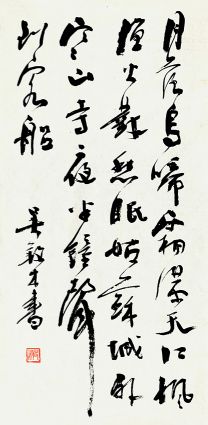 月落烏啼霜滿天江楓
漁火對愁眠姑蘇城外
寒山寺夜半鐘聲
到客船
吳 書